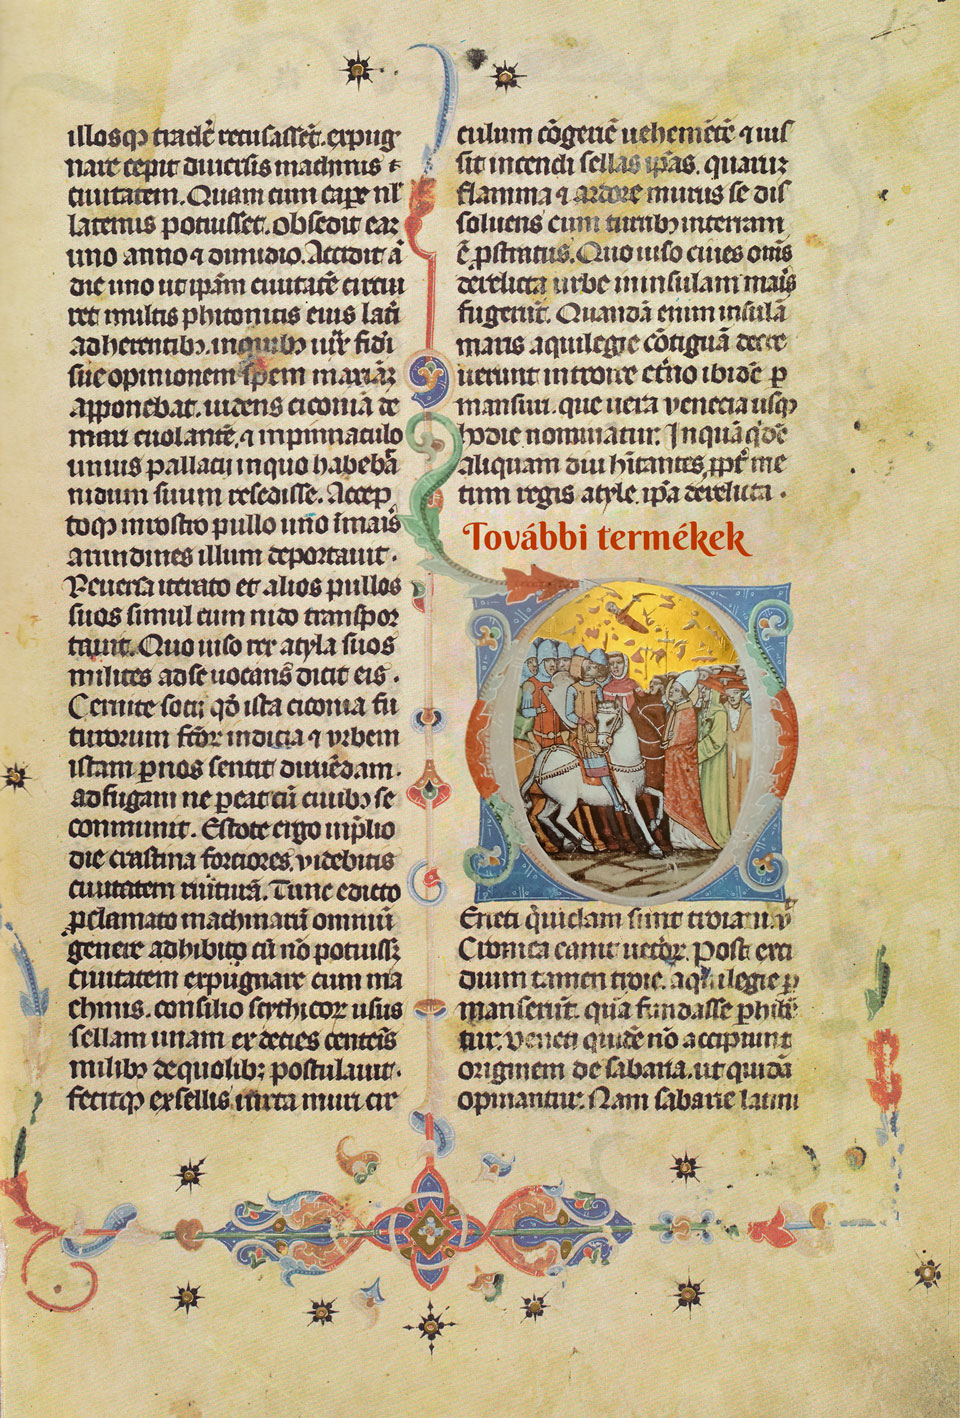 illosqꝫ tradẽ recusassẽt, expug
nare cepit diuersis machinis
ciuitatem. Quam cum caꝑe nl̃
latenus potuisset, obsedit eaꝫ
uno anno ⁊ dimidio. Accidit ã
die uno ut ip̃am ciuitatẽ circui
ret multis phitonicis eius lat̃i
adherentibꝫ, inquibꝫ
sue opinionem spem maxiãꝫ
apponebat, uidens ciconiã de
mari euolantẽ, ⁊ inpinnaculo
unius pallacii inquo habebã
nidum suum resedisse. Accep
toqꝫ inrostro pullo uño ĩmaris
arundines illum deportauit.
Reuersa iterato et alios pullos
suos simul cum nido transpor
tauit. Quo uiso rex atyla suos
milites adse uocans dicit eis.
Cernite socii qd̃ ista ciconia fu
turorum indicia ⁊ vrbem
istam ꝑnos sentit diruẽdam.
adfugam ne ꝑeat cũ ciuibꝫ se
conmunit. Estote ergo inp̃lio
die crastina forciores, videbitis
ciuitatem ruiturã. Tunc edicto
ꝓclamato machinatũ omniũ
genere adhibito cũ nõ potuissꝫ
ciuitatem expugnare cum ma
chinis, consilio scythicoꝝ usus
sellam unam ex decies centeñis
milibꝫ dequolibꝫ postulauit.
fecitqꝫ ex sellis iuxta muri cir
culum cõgeriẽ uehemẽtẽ ⁊ ius
sit incendi sellas ip̃as, quaruꝫ
flamma ⁊ ardore murus se dis
soluens cum turribꝫ interram
ẽ ꝓstratus. Quo uiso ciues om̃s
derelicta urbe ininsulam maris
fugerũt. Quandã enim insulã
maris aquilegie cõtiguã decre
uerunt introire et̃no ibidẽ ꝑ
mansuri, que uera venecia usqꝫ
hodie nominatur. Inquã qd̃ẽ
aliquam diu hĩtantes, ꝓpt̃ me
tum regis atyle ip̃a derelicta.
További termékek
Eneti quidam sunt troiani, ṽ
Cronica canit uetoꝝ. Post exci
dium tamen troie, aquilegie ꝑ
manserũt, quã fundasse ꝑhibẽ
tur. Veneti quidẽ nõ accipiunt
originem de sabaria, ut quidã
opinantur. Nam sabarie latini